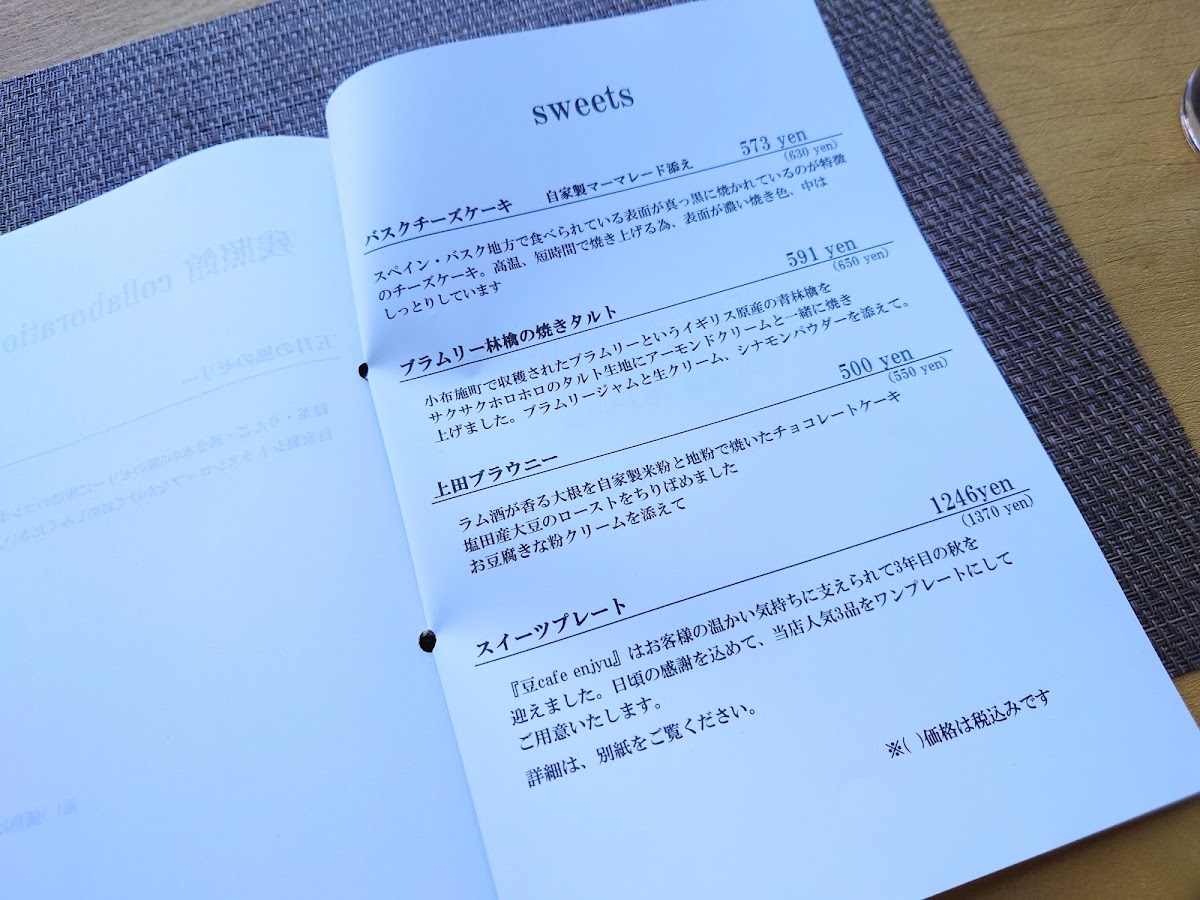 sweets
バスクチーズケーキ 自家製マーマレード添え 573 yen
(630 yen)
スペイン・バスク地方で食べられている表面が真っ黒に焼かれているのが特徴
のチーズケーキ。高温、短時間で焼き上げる為、表面が濃い焼き色、中は
しっとりしています
ブラムリー林檎の焼きタルト 591 yen
(650 yen)
小布施町で収穫されたブラムリーというイギリス原産の青林檎を
サクサクホロホロのタルト生地にアーモンドクリームと一緒に焼き
上げました。ブラムリージャムと生クリーム、シナモンパウダーを添えて。
上田ブラウニー 500 yen
(550 yen)
ラム酒が香る大根を自家製米粉と地粉で焼いたチョコレートケーキ
塩田産大豆のローストをちりばめました
お豆腐きな粉クリームを添えて
スイーツプレート 1246yen
(1370 yen)
『豆cafe enjyu』はお客様の温かい気持ちに支えられて3年目の秋を
迎えました。日頃の感謝を込めて、当店人気3品をワンプレートにして
ご用意いたします。
詳細は、別紙をご覧ください。
※( )価格は税込みです